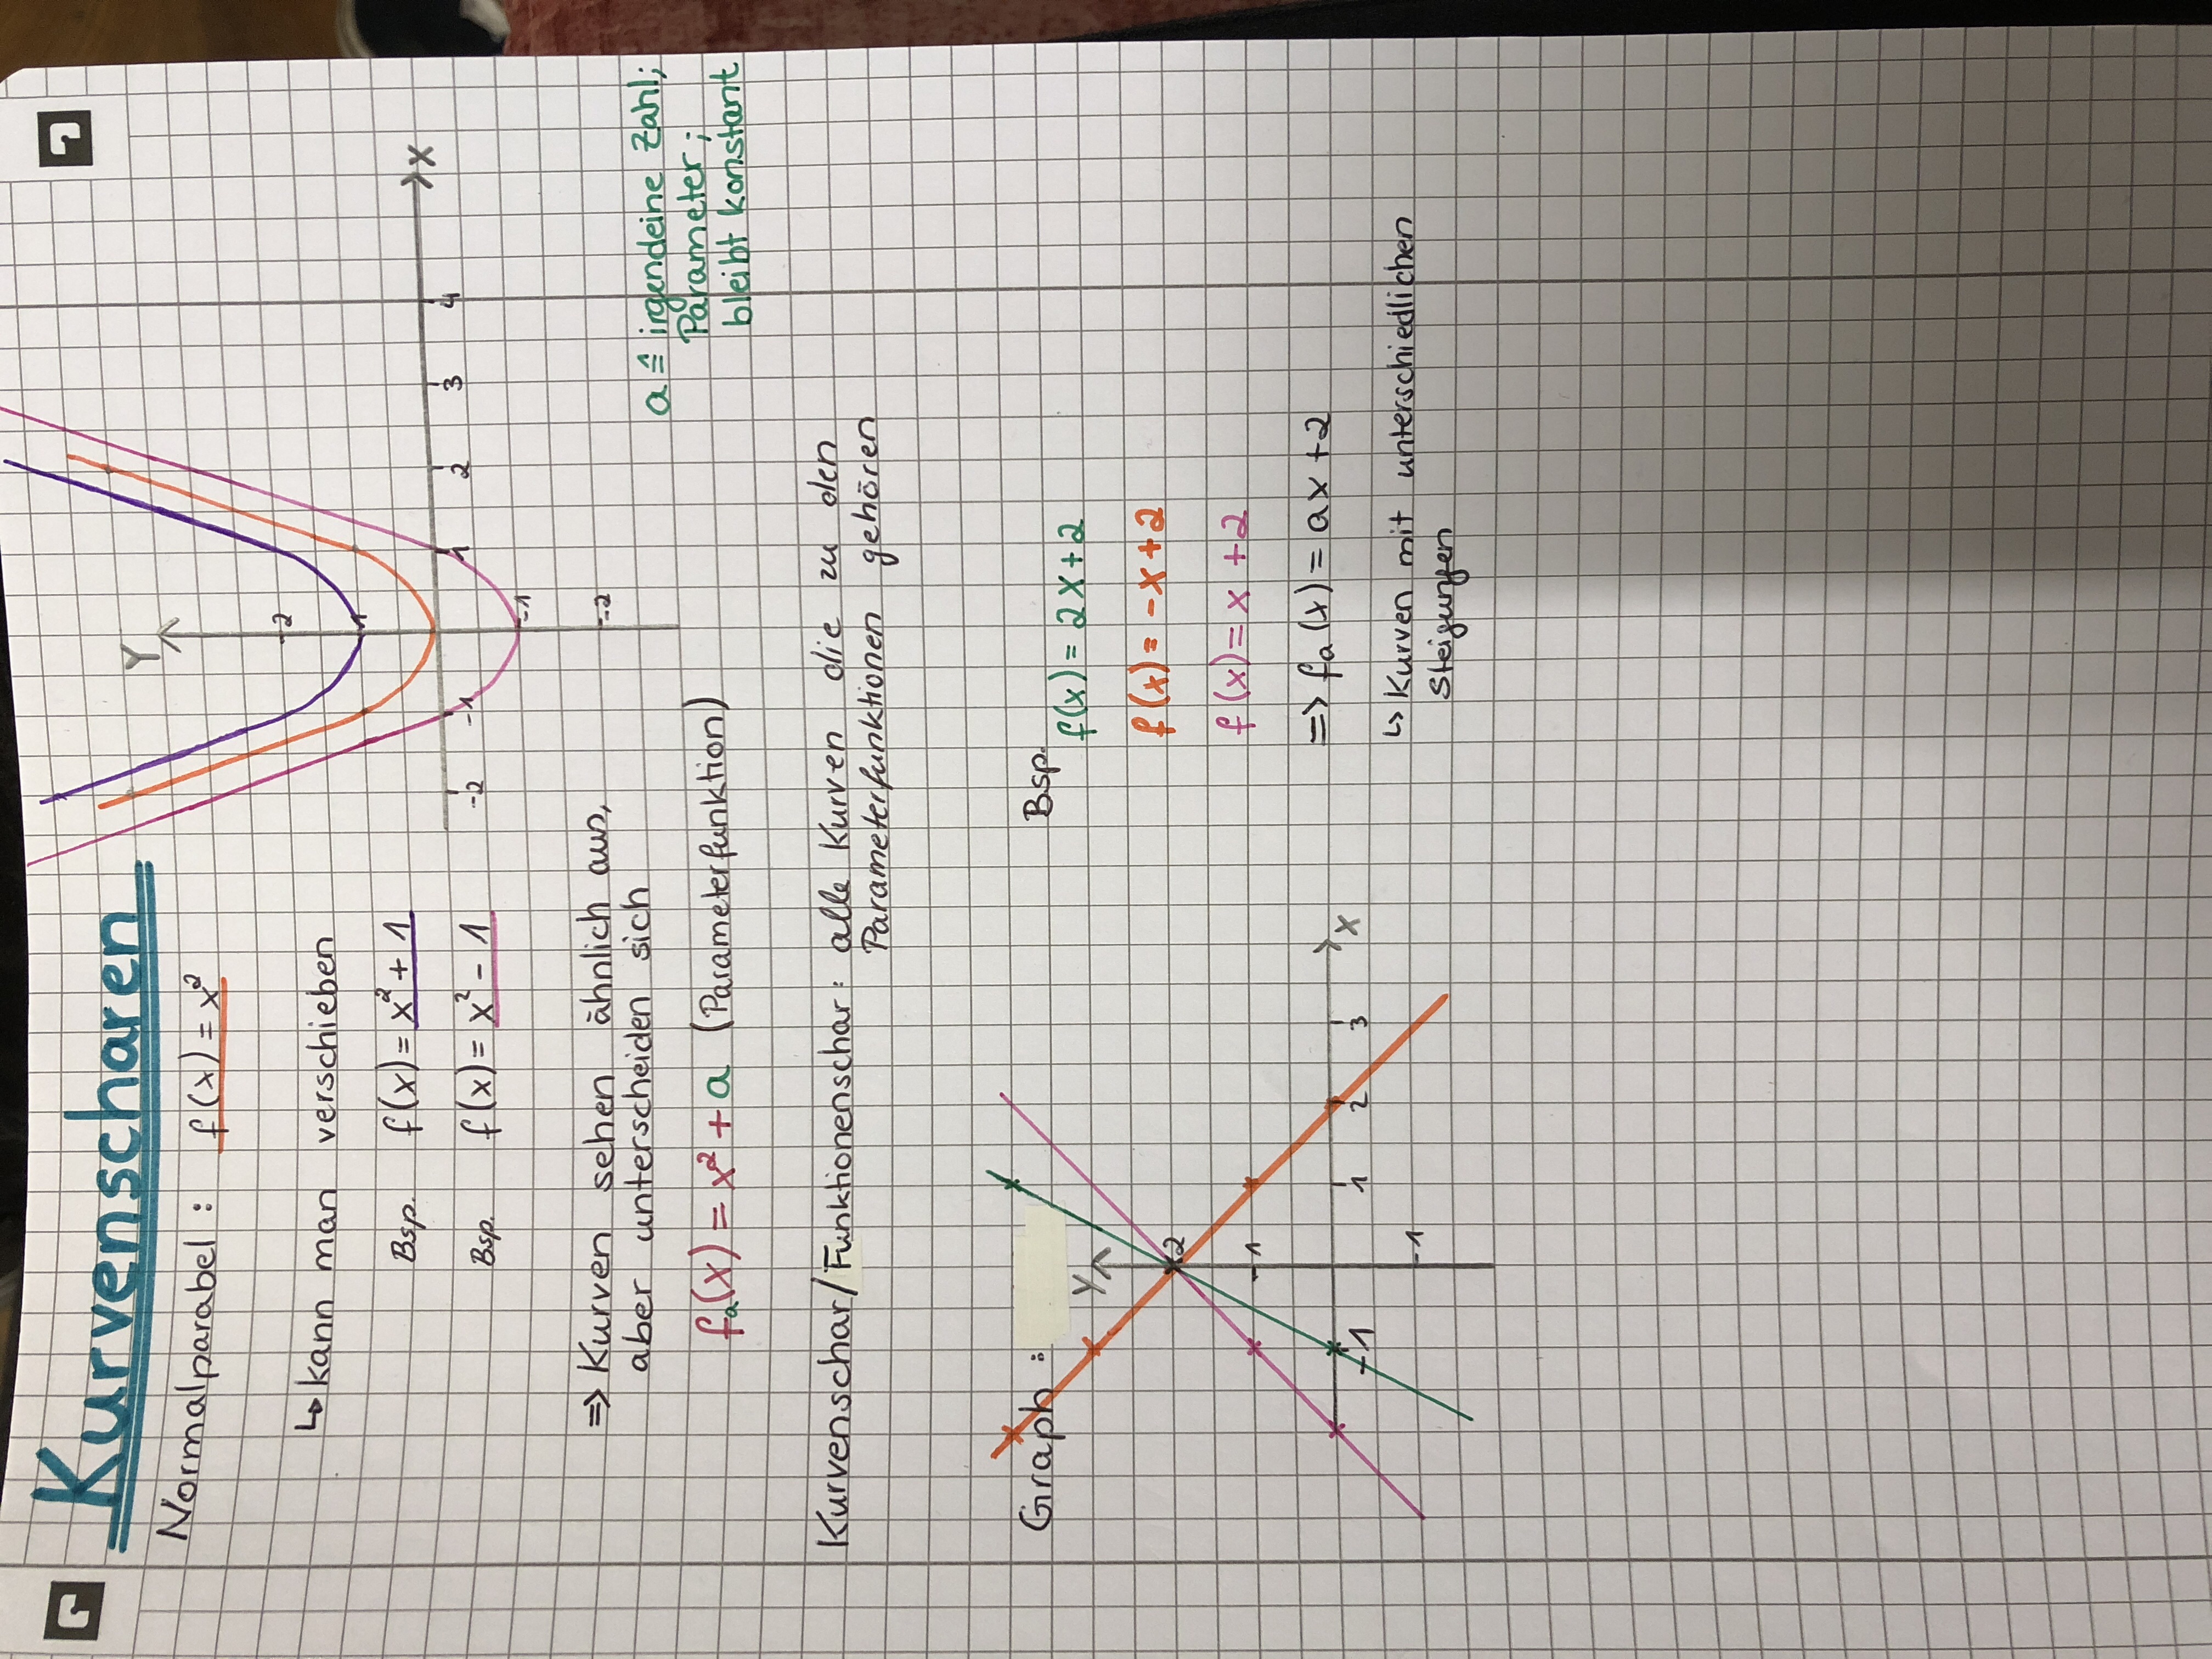 Kurvenscharen
Normalparabel: f(x) = x²
↳ kann man verschieben
Bsp. f(x) = x² + 1
Bsp. f(x) = x² - 1
Y
X
2
1
-1
-2
-2
-1
1
2
3
4
⇒ Kurven sehen ähnlich aus,
aber unterscheiden sich
a ≙ irgendeine Zahl;
Parameter;
bleibt konstant
fa(x) = x² + a (Parameterfunktion)
Kurvenschar/Funktionenschar: alle Kurven die zu den
Parameterfunktionen gehören
Graph:
Y
X
2
1
-1
-1
1
2
3
Bsp.
f(x) = 2x+2
f(x) = -x+2
f(x) = x+2
⇒ fa(x) = ax+2
↳ Kurven mit unterschiedlichen
Steigungen